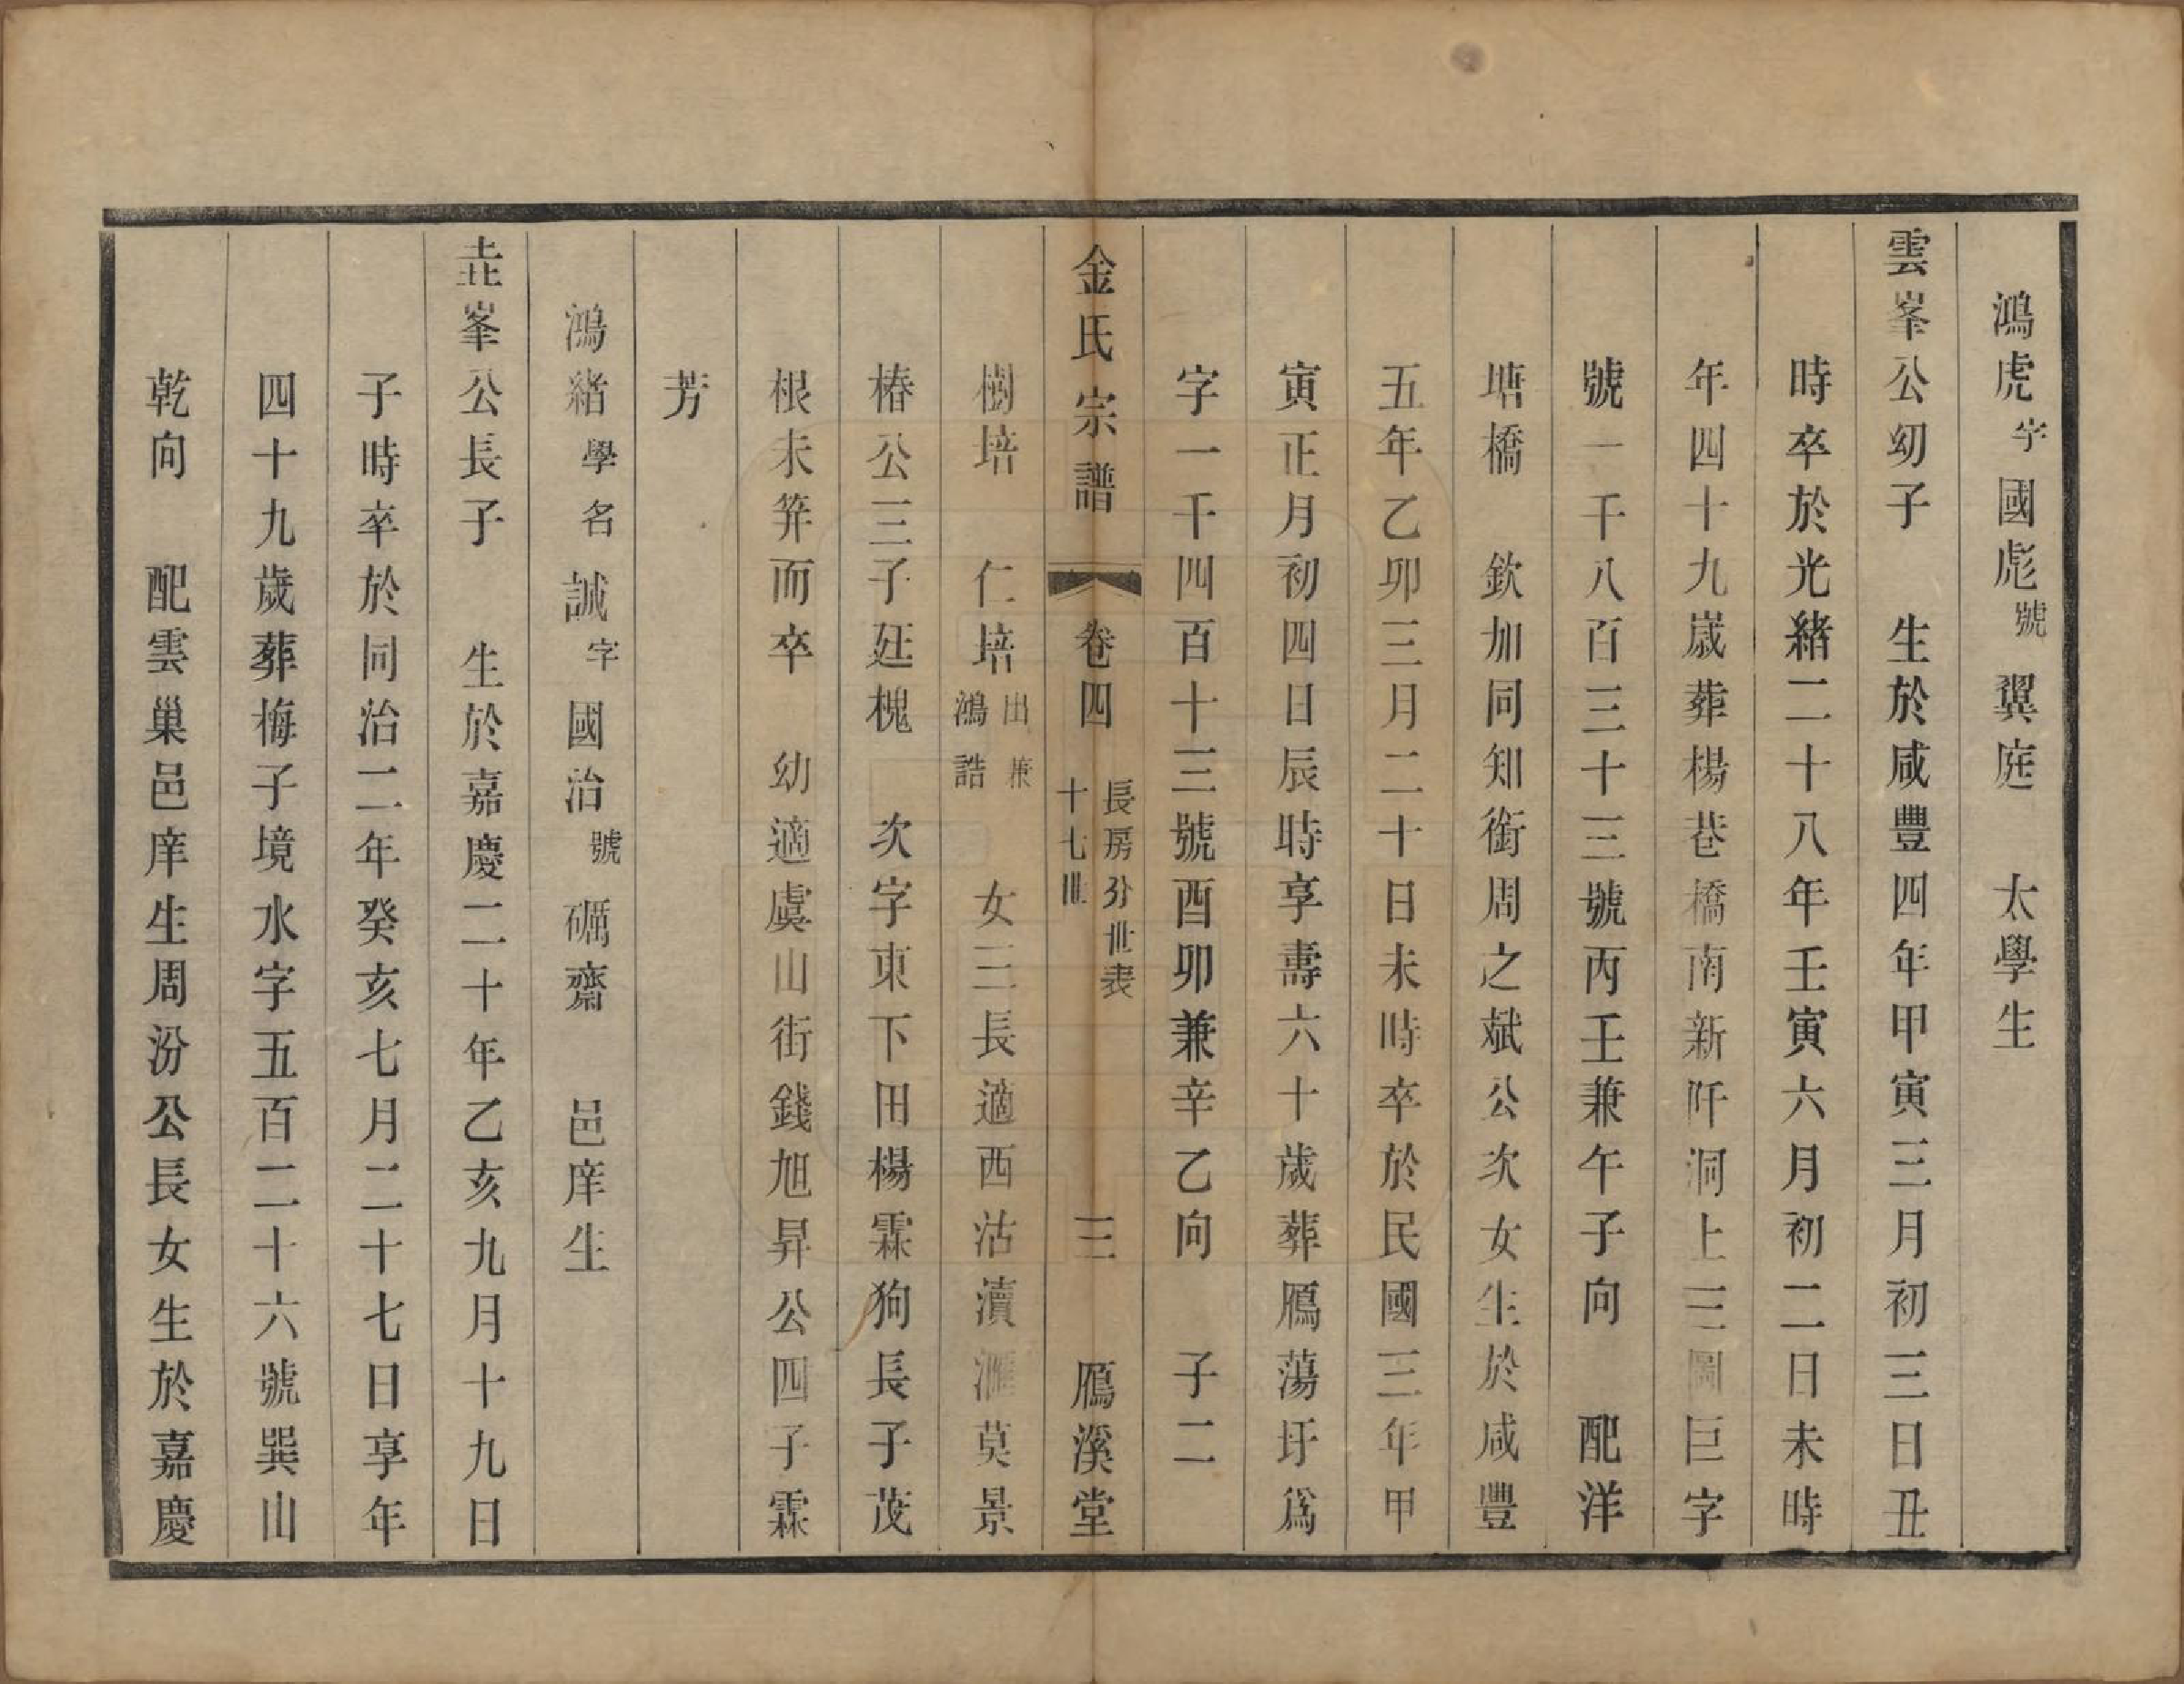 鴻虎字國彪號翼庭　太學生
雲峯公幼子　生於咸豐四年甲寅三月初三日丑
時卒於光緒二十八年壬寅六月初二日未時
年四十九歲葬楊巷橋南新阡洞上三圖巨字
號一千八百三十三號丙壬兼午子向　配洋
塘橋　欽加同知銜周之斌公次女生於咸豐
五年乙卯三月二十日未時卒於民國三年甲
寅正月初四日辰時享壽六十歲葬鴈蕩圩爲
字一千四百十三號酉卯兼辛乙向　子二
金氏宗譜　卷四　長房分世表　十七世　三　鴈溪堂
樹培　仁培出兼鴻誥　女三長適西沽瀆滙莫景
椿公三子廷槐　次字東下田楊霖狗長子茂
根未笄而卒　幼適虞山街錢旭昇公四子霖
芳
鴻緒學名誠字國治號礪齋　邑庠生
峯公長子　生於嘉慶二十年乙亥九月十九日
子時卒於同治二年癸亥七月二十七日享年
四十九歲葬梅子境水字五百二十六號巽山
乾向　配雲巢邑庠生周汾公長女生於嘉慶